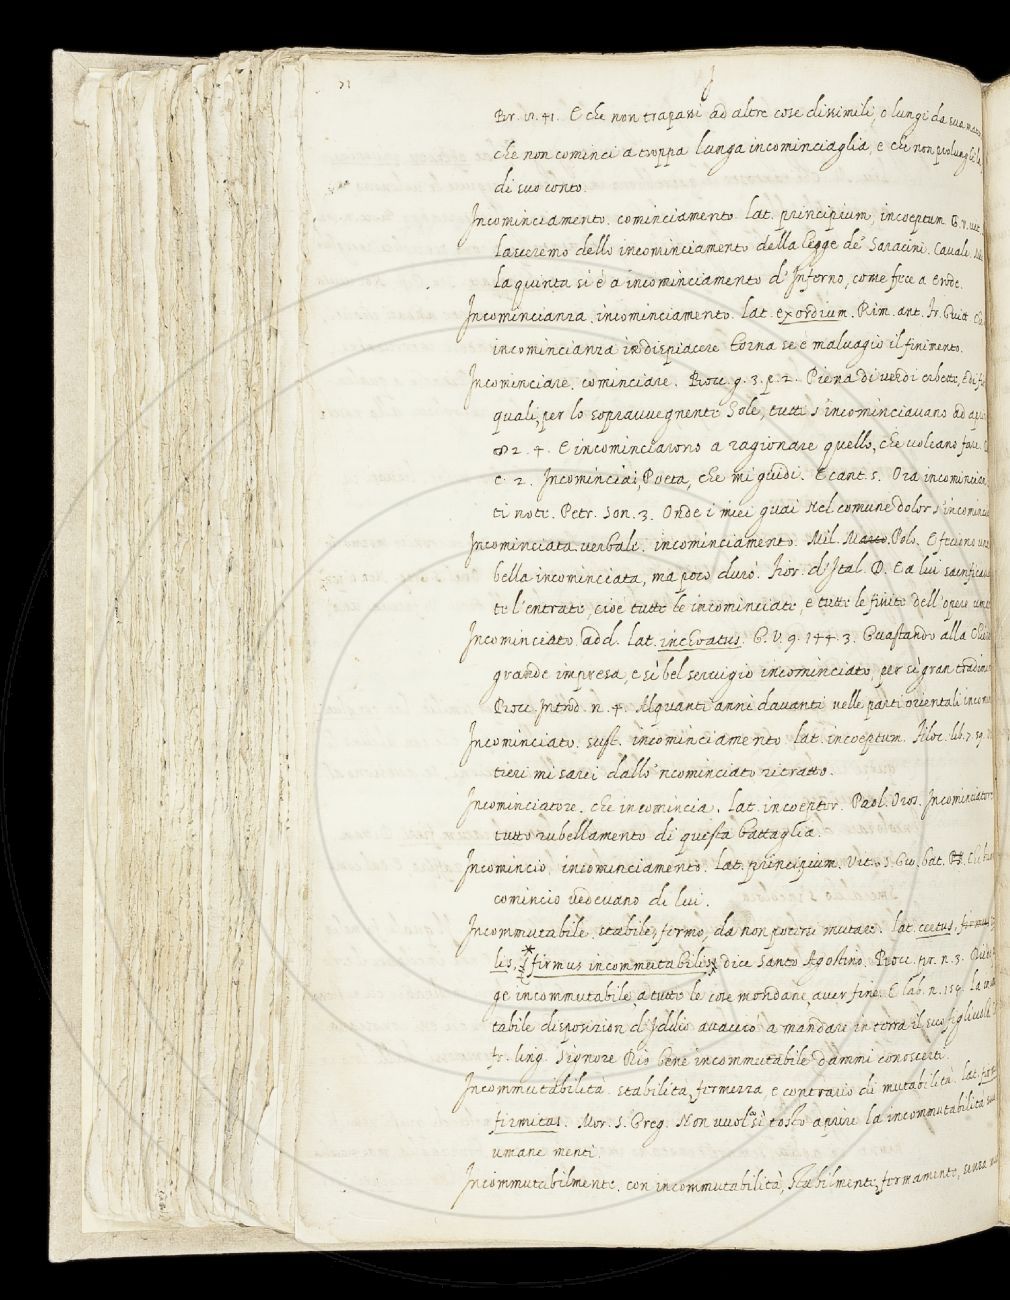 I
Br. n. 41. E che non trapassi ad altre cose dissimili, o lungi da sua
che non cominci a troppa lunga incominciaglia, e che non prolunghi
di suo conto.
Incominciamento. cominciamento. lat. principium, inceptum. G. V.
lasceremo dello incominciamento della legge de' Saracini. Cavalc.
la quinta si è a incominciamento d'Inferno, come fece a Erode.
Incomincianza. incominciamento. lat. exordium. Rim. ant. Fr. Guitt.
incomincianza in dispiacere torna se è malvagio il finimento.
Incominciare, cominciare. Bocc. g. 3. p. 2. Piena di verdi erbette, e di
quali, per lo sopravvegnente Sole, tutti s'incominciavano ad
2. 4. E incominciarono a ragionare quello, che voleano fare.
c. 2. Incominciai, Poeta, che mi guidi. E cant. 5. Ora incomincian
ti note. Petr. Son. 3. Onde i miei guai Nel comune dolor s'incominciaro
Incominciata. verbale. incominciamento. Mil. Marco Polo. E feciono una
bella incominciata, ma poco durò. Fior. d'Ital. D. E a lui sacrificavano
te l'entrate, cioè tutte le incominciate, e tutte le finite dell'opere umane
Incominciato. add. lat. inchoatus. G. V. 9. 144. 3. Guastando alla Chiesa
grande impresa, e sì bel servigio incominciato, per sì gran
Bocc. Introd. n. 4. Alquanti anni davanti nelle parti orientali
Incominciato. sust. incominciamento. lat. inceptum. Filoc. lib. 7. 59.
tieri mi sarei dallo 'ncominciato ritratto.
Incominciatore. che incomincia. lat. inceptor. Paol. Oros. Incominciatore
tutto rubellamento di questa battaglia.
Incomincio, incominciamento. lat. principium. Vit. S. Gio. bat.
comincio vedevano di lui.
Incommutabile. stabile, fermo, da non potersi mutare. lat. certus,
lis, firmus incommutabilis, dice Santo Agostino. Bocc. pr. n. 3.
ge incommutabile a tutte le cose mondane, aver fine. E lab. n. 159. La
tabile disposizion d'Iddio avacciò a mandare in terra il suo figliuolo
fr. ling. Signore Dio bene incommutabile dammi conoscerti.
Incommutabilità. stabilità, fermezza, e contrario di mutabilità. lat.
firmitas. Mor. S. Greg. Non vuolsi tosto aprire la incommutabilità
umane menti.
Incommutabilmente. con incommutabilità, stabilmente, fermamente, senza